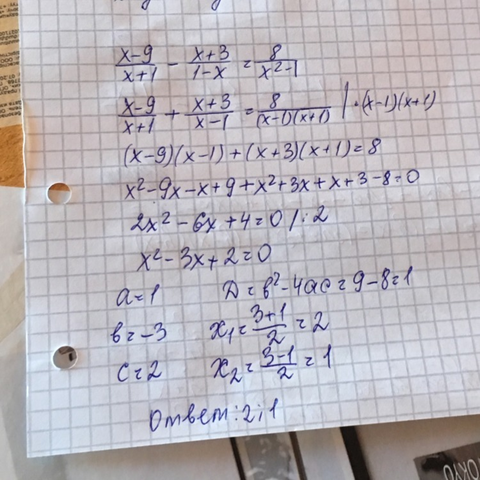 (x-9)/(x+1) - (x+3)/(1-x) = 8/(x²-1)
(x-9)/(x+1) + (x+3)/(x-1) = 8/((x-1)(x+1)) / ·(x-1)(x+1)
(x-9)(x-1)+(x+3)(x+1)=8
x²-9x-x+9+x²+3x+x+3-8=0
2x²-6x+4=0 /:2
x²-3x+2=0
a=1 D=b²-4ac=9-8=1
b=-3 x₁=(3+1)/2=2
c=2 x₂=(3-1)/2=1
Ответ: 2; 1
TOKYO